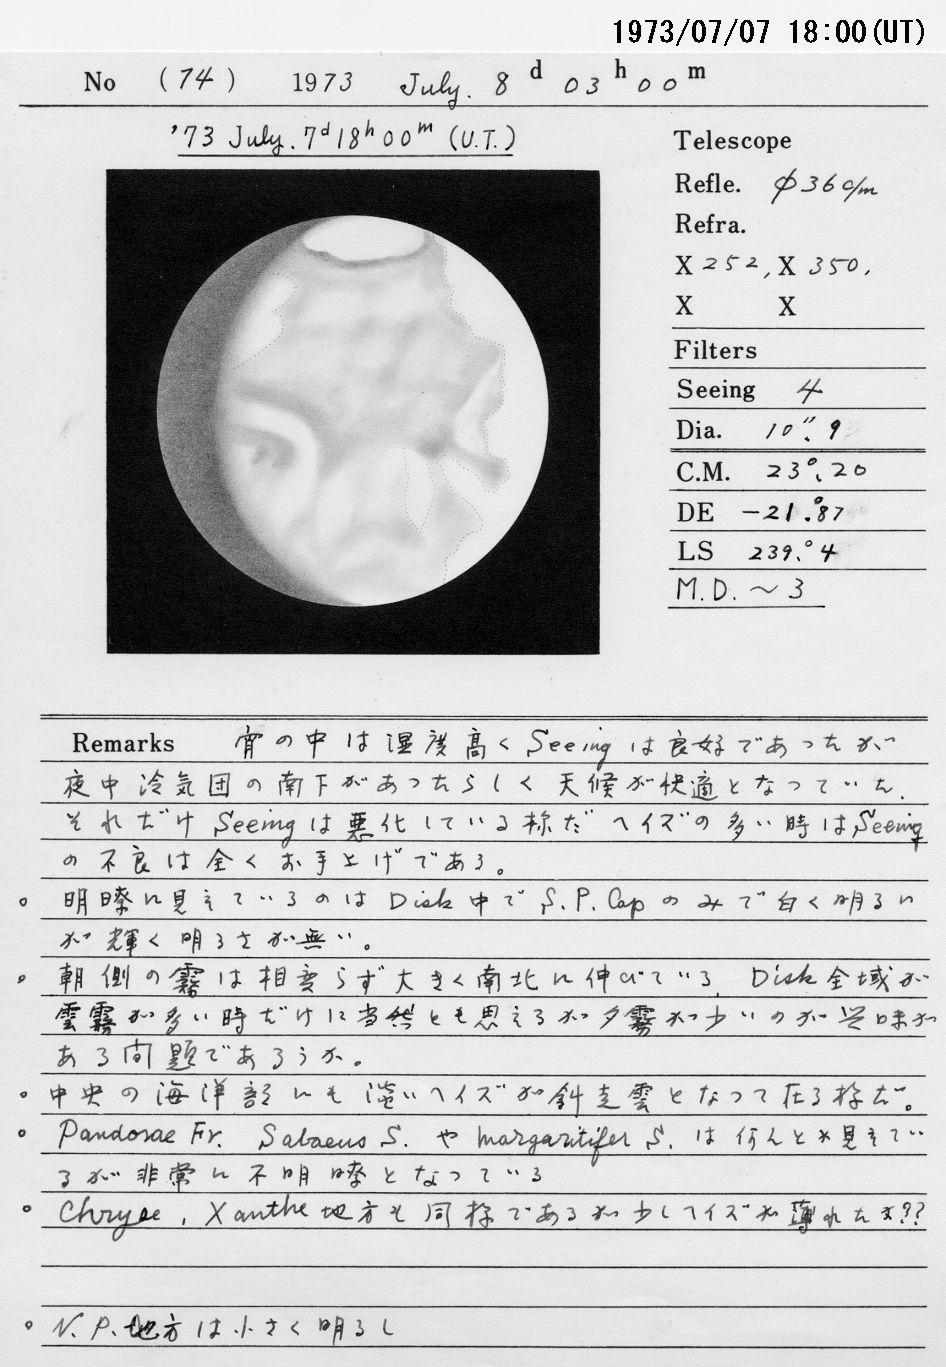 1973/07/07 18:00(UT)
No (74) 1973 July. 8 d 03 h 00 m
'73 July. 7d 18h 00m (U.T.)
Telescope
Refle. φ36 c/m
Refra.
X 252, X 350.
X X
Filters
Seeing 4
Dia. 10".9
C.M. 23°.20
DE -21°.87
LS 239°.4
M.D. ~3
Remarks 宵の中は湿度高くSeeingは良好であったが
夜中冷気団の南下があったらしく天候が快適となっていた.
それだけSeeingは悪化している様だ ヘイズの多い時はSeeing
の不良は全くお手上げである。
◦ 明瞭に見えているのはDisk中でS.P.Capのみで白く明るい
が輝く明るさが無い。
◦ 朝側の霧は相変らず大きく南北に伸びている. Disk全域が
雲霧が多い時だけに当然とも思えるが夕霧が少いのが興味が
ある問題であろうか。
◦ 中央の海洋部にも淡いヘイズが斜走雲となって在る様だ。
◦ Pandorae Fr. Sabaeus S. や Margaritifer S. は何んとか見えてい
るが非常に不明瞭となっている
◦ Chryse, Xanthe地方も同様であるが少しヘイズが薄れたか??
◦ N.P.地方は小さく明るし